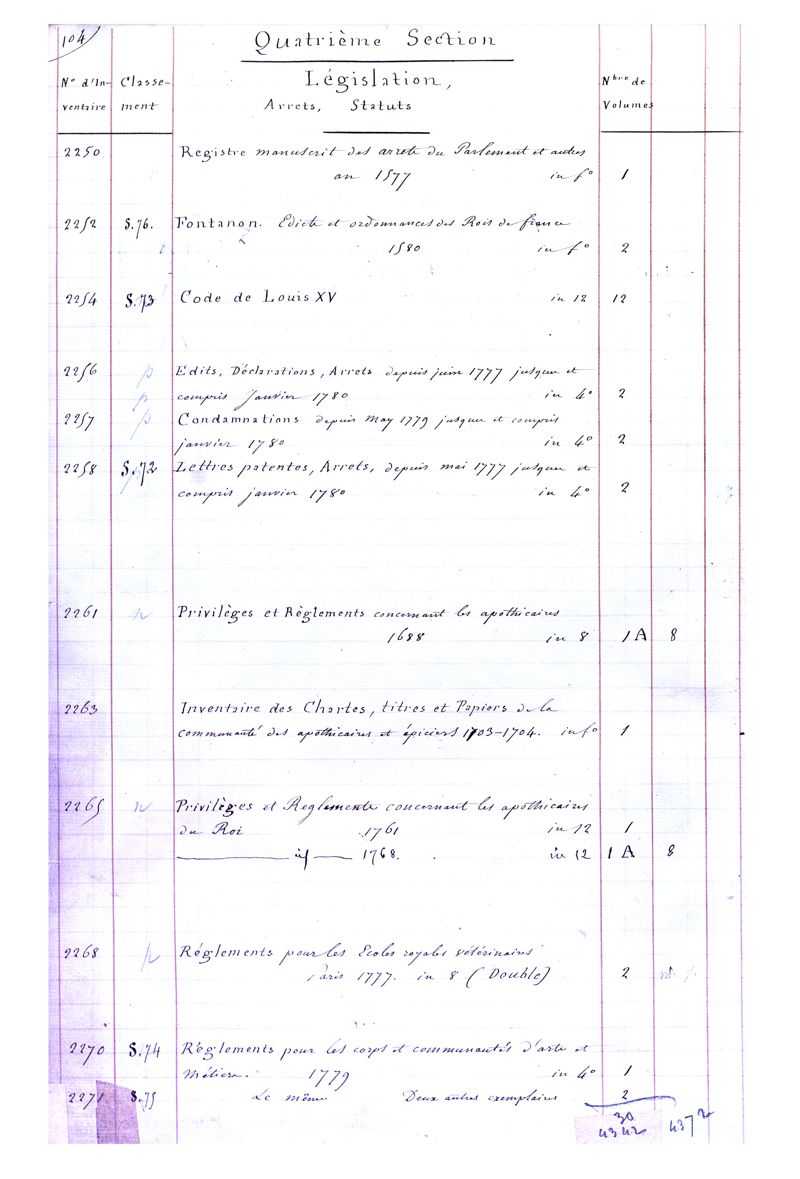 104
Quatrième Section
N° d'In- Classe- Législation, Nbre de
ventaire ment Arrets, Statuts Volumes
2250 Registre manuscrit des arrets du Parlement et autres
an 1577 in f° 1
2252 S.76. Fontanon. Edicts et ordonnances des Rois de france
1580 in f° 2
2254 S.73 Code de Louis XV in 12 12
2256 p Edits, Déclarations, Arrets depuis juin 1777 jusques et
p compris Janvier 1780 in 4° 2
2257 p Condamnations depuis May 1779 jusques et compris
janvier 1780 in 4° 2
2258 S.72 Lettres patentes, Arrets, depuis mai 1777 jusques et
compris janvier 1780 in 4° 2
2261 Privilèges et Règlements concernant les apothicaires
1688 in 8 1 A 8
2263 Inventaire des Chartes, titres et Papiers de la
communauté des apothicaires et épiciers 1703-1704. in f° 1
2265 Privilèges et Reglements concernant les apothicaires
du Roi 1761 in 12 1
id 1768. in 12 1 A 8
2268 p Réglements pour les Ecoles royales vétérinaires
Paris 1777. in 8 (Double) 2
2270 S.74 Réglements pour les corps et communautés d'arts et
Métiers. 1779 in 4° 1
2271 S.75 Le même Deux autres exemplaires 2
30
4342 4372